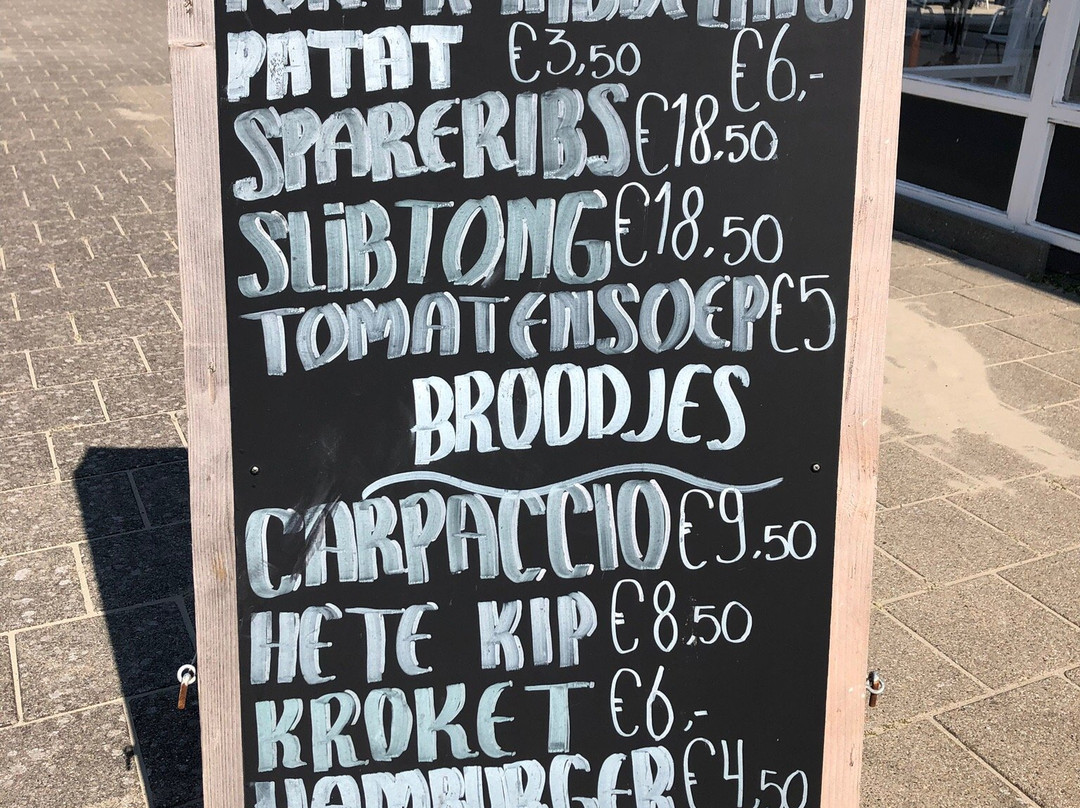 PATAT €3,50 €6,-
SPARERIBS €18,50
SLIBTONG €18,50
TOMATENSOEP €5
BROODJES
CARPACCIO €9,50
HETE KIP €8,50
KROKET €6,-
HAMBURGER €4,50